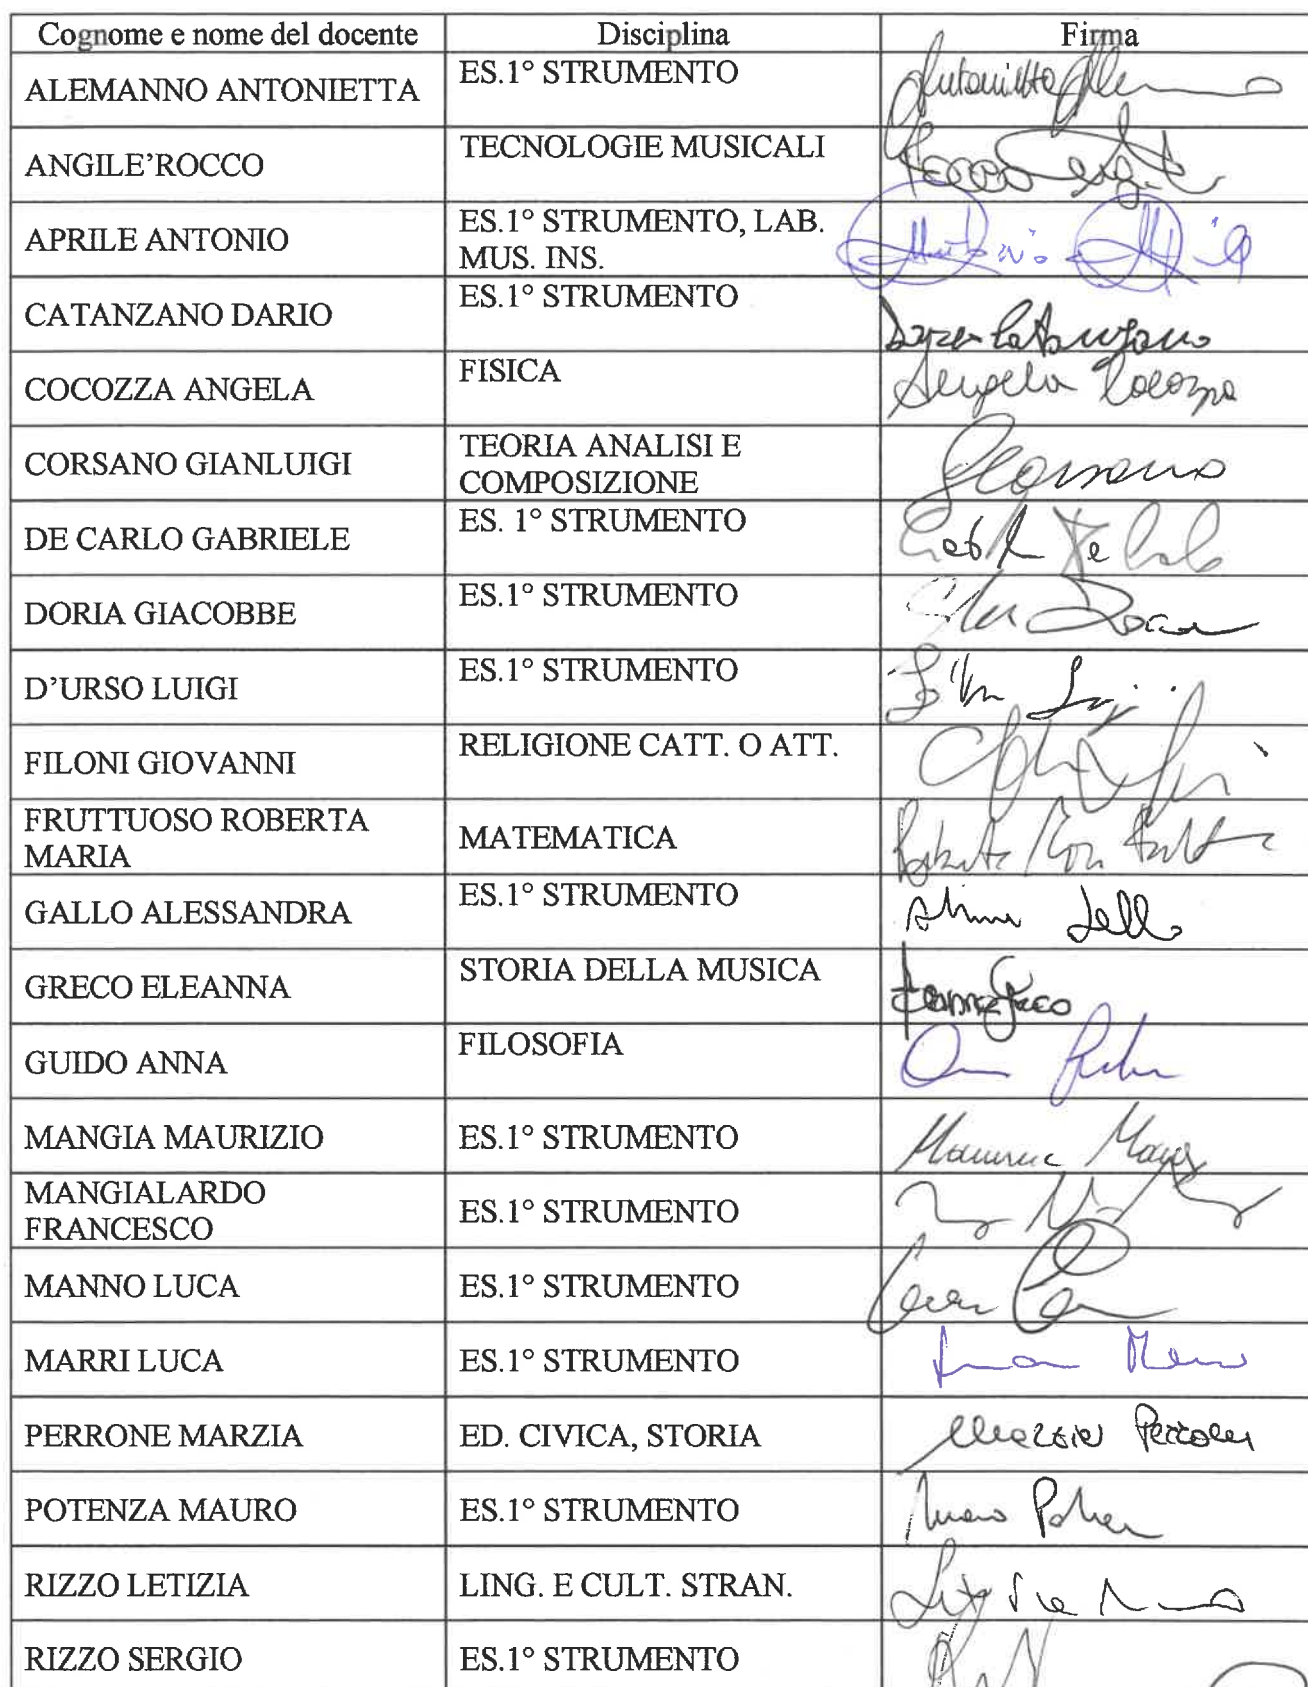 Cognome e nome del docente Disciplina Firma
ALEMANNO ANTONIETTA ES.1° STRUMENTO Antonietta Alemanno
ANGILE’ROCCO TECNOLOGIE MUSICALI Rocco
APRILE ANTONIO ES.1° STRUMENTO, LAB.
MUS. INS. Antonio
CATANZANO DARIO ES.1° STRUMENTO Dario Catanzano
COCOZZA ANGELA FISICA Angela Cocozza
CORSANO GIANLUIGI TEORIA ANALISI E
COMPOSIZIONE GCorsano
DE CARLO GABRIELE ES. 1° STRUMENTO De Carlo
DORIA GIACOBBE ES.1° STRUMENTO
D’URSO LUIGI ES.1° STRUMENTO
FILONI GIOVANNI RELIGIONE CATT. O ATT.
FRUTTUOSO ROBERTA
MARIA MATEMATICA Roberta
GALLO ALESSANDRA ES.1° STRUMENTO
GRECO ELEANNA STORIA DELLA MUSICA Greco
GUIDO ANNA FILOSOFIA
MANGIA MAURIZIO ES.1° STRUMENTO
MANGIALARDO
FRANCESCO ES.1° STRUMENTO
MANNO LUCA ES.1° STRUMENTO
MARRI LUCA ES.1° STRUMENTO
PERRONE MARZIA ED. CIVICA, STORIA Marzia Perrone
POTENZA MAURO ES.1° STRUMENTO
RIZZO LETIZIA LING. E CULT. STRAN. Letizia
RIZZO SERGIO ES.1° STRUMENTO